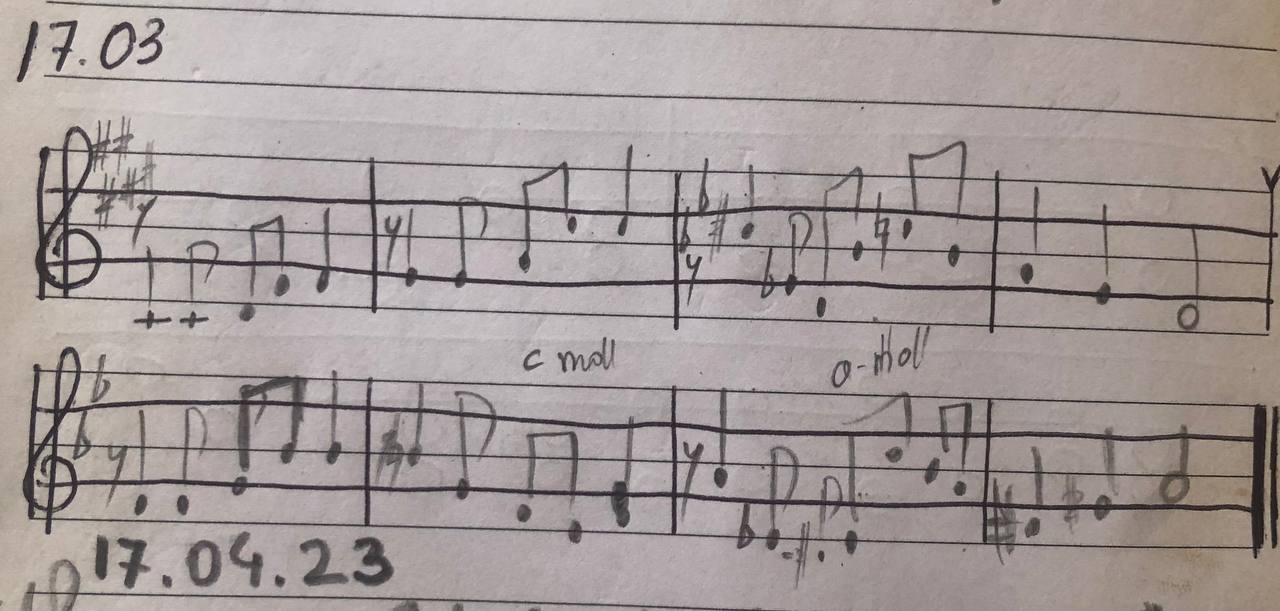 17.03
c moll a-moll
17.04.23